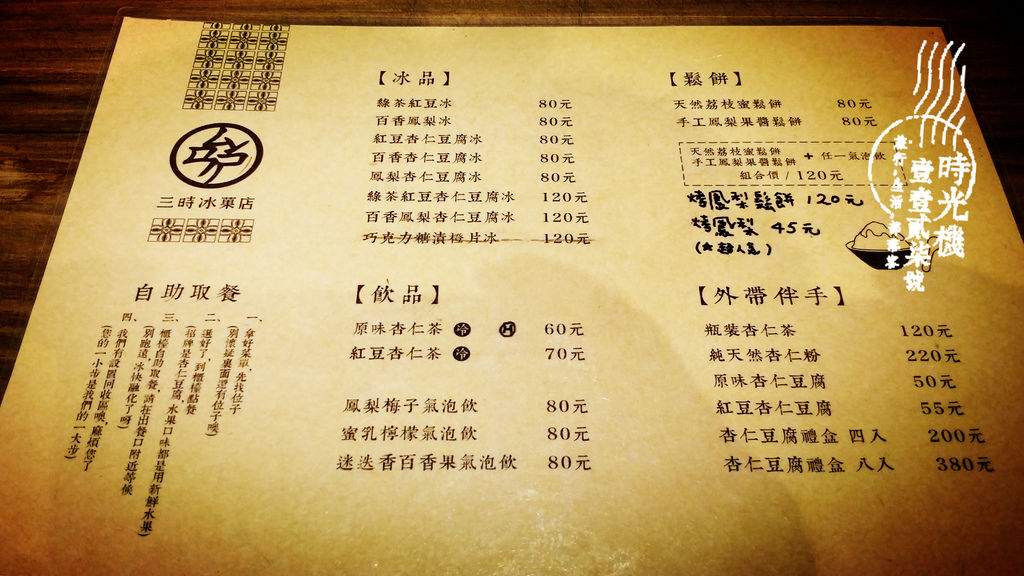 三時冰菓店
【冰品】
綠茶紅豆冰 80元
百香鳳梨冰 80元
紅豆杏仁豆腐冰 80元
百香杏仁豆腐冰 80元
鳳梨杏仁豆腐冰 80元
綠茶紅豆杏仁豆腐冰 120元
百香鳳梨杏仁豆腐冰 120元
巧克力糖漬橙片冰 120元
【鬆餅】
天然荔枝蜜鬆餅 80元
手工鳳梨果醬鬆餅 80元
天然荔枝蜜鬆餅
手工鳳梨果醬鬆餅 + 任一氣泡飲
組合價 / 120元
烤鳳梨鬆餅 120元
烤鳳梨 45元
(大超人氣)
自助取餐
一、拿好菜單、先找位子
(別懷疑裏面還有位子噢)
二、選好了，到櫃檯點餐
(招牌是杏仁豆腐，水果口味都是用新鮮水果)
三、櫃檯自助取餐，請在出餐口附近等候
(別跑遠，冰快融化了呀)
四、我們有設置回收區噢，麻煩您了
(您的一小步是我們的一大步)
【飲品】
原味杏仁茶 冷 H 60元
紅豆杏仁茶 冷 70元
鳳梨梅子氣泡飲 80元
蜜乳檸檬氣泡飲 80元
迷迭香百香果氣泡飲 80元
【外帶伴手】
瓶裝杏仁茶 120元
純天然杏仁粉 220元
原味杏仁豆腐 50元
紅豆杏仁豆腐 55元
杏仁豆腐禮盒 四入 200元
杏仁豆腐禮盒 八入 380元
時光機
壹壹貳柒號
旅行．生活．部落客